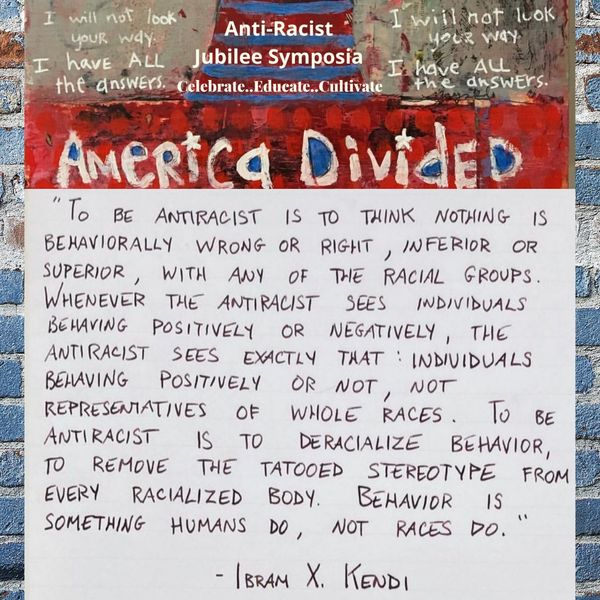 I will not look
your way.
I have ALL
the answers.
Anti-Racist
Jubilee Symposia
Celebrate..Educate..Cultivate
I will not look
your way
I have ALL
the answers.
AMERICA DIVIDED
"TO BE ANTIRACIST IS TO THINK NOTHING IS
BEHAVIORALLY WRONG OR RIGHT, INFERIOR OR
SUPERIOR, WITH ANY OF THE RACIAL GROUPS.
WHENEVER THE ANTIRACIST SEES INDIVIDUALS
BEHAVING POSITIVELY OR NEGATIVELY, THE
ANTIRACIST SEES EXACTLY THAT: INDIVIDUALS
BEHAVING POSITIVELY OR NOT, NOT
REPRESENTATIVES OF WHOLE RACES. TO BE
ANTIRACIST IS TO DERACIALIZE BEHAVIOR,
TO REMOVE THE TATOOED STEREOTYPE FROM
EVERY RACIALIZED BODY. BEHAVIOR IS
SOMETHING HUMANS DO, NOT RACES DO."
- IBRAM X. KENDI